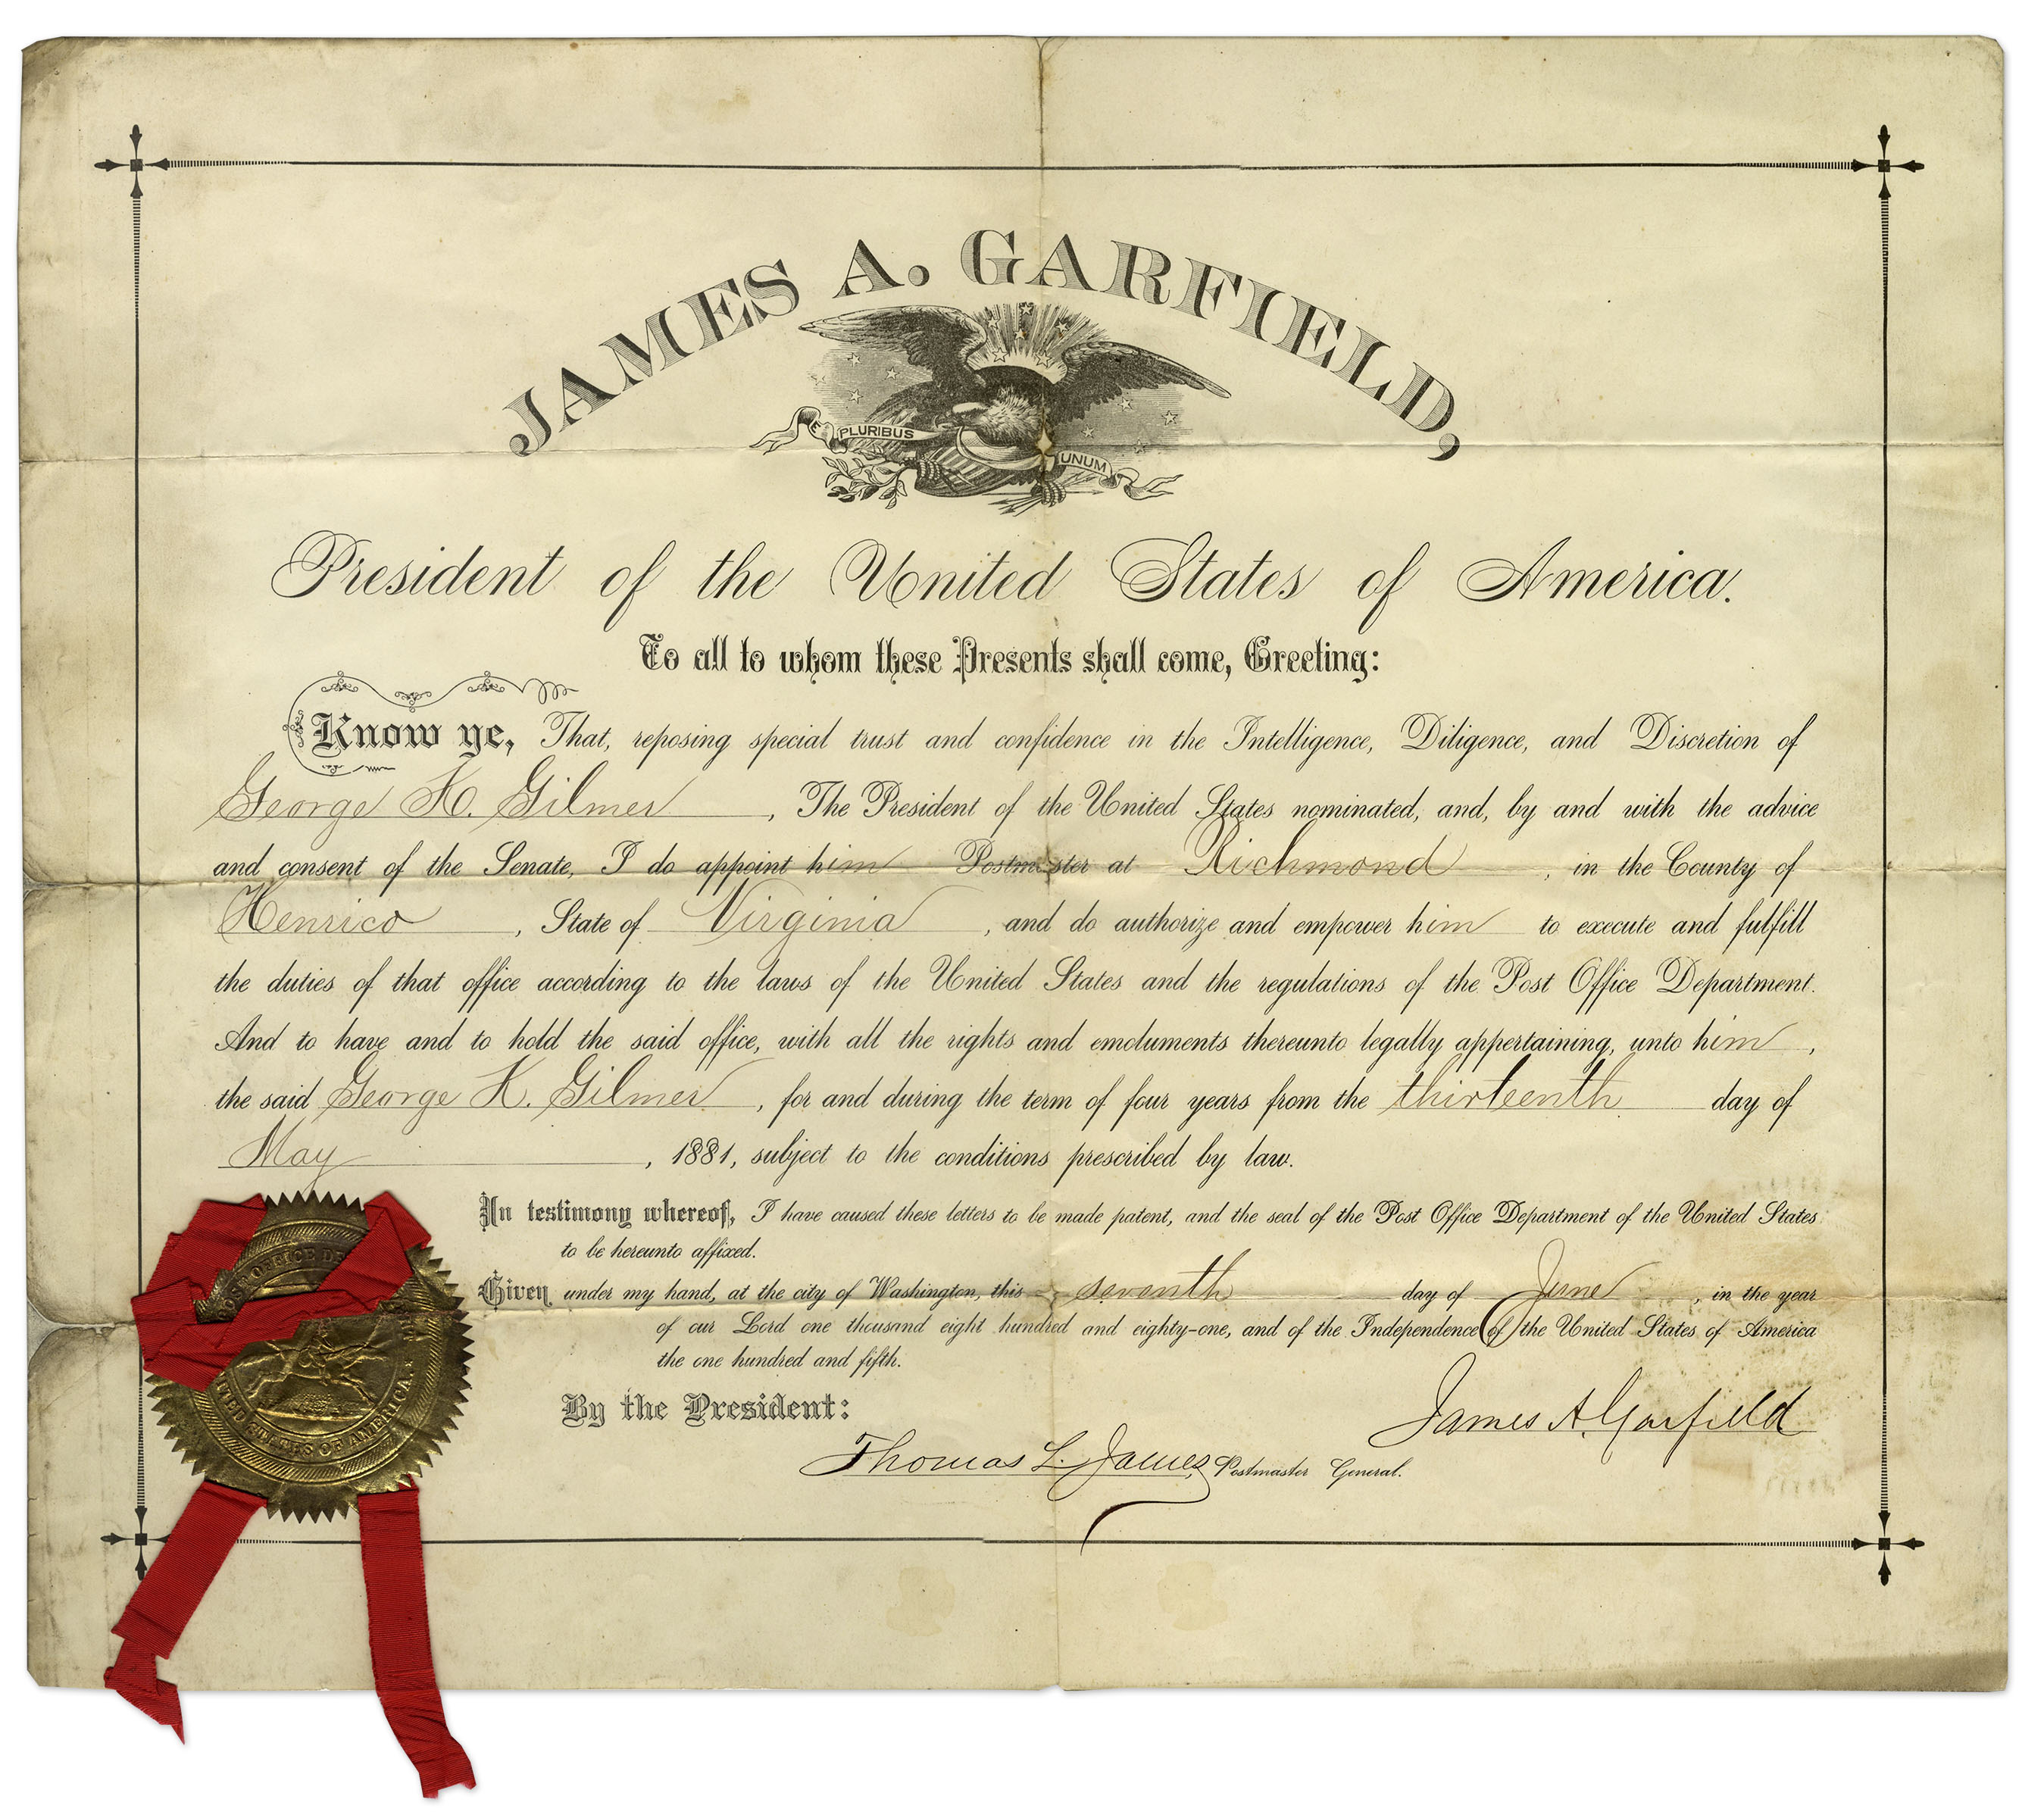 JAMES A. GARFIELD,
E PLURIBUS UNUM
President of the United States of America.
To all to whom these Presents shall come, Greeting:
Know ye, That, reposing special trust and confidence in the Intelligence, Diligence, and Discretion of
George K. Gilmer, The President of the United States nominated, and, by and with the advice
and consent of the Senate, I do appoint him Postmaster at Richmond, in the County of
Henrico, State of Virginia, and do authorize and empower him to execute and fulfill
the duties of that office according to the laws of the United States and the regulations of the Post Office Department.
And to have and to hold the said office, with all the rights and emoluments thereunto legally appertaining, unto him,
the said George K. Gilmer, for and during the term of four years from the thirteenth day of
May, 1881, subject to the conditions prescribed by law.
In testimony whereof, I have caused these letters to be made patent, and the seal of the Post Office Department of the United States
to be hereunto affixed.
Given under my hand, at the city of Washington, this seventh day of June, in the year
of our Lord one thousand eight hundred and eighty-one, and of the Independence of the United States of America
the one hundred and fifth.
By the President:
James A. Garfield
Thomas L. James, Postmaster General.
POST OFFICE
UNITED STATES OF AMERICA.